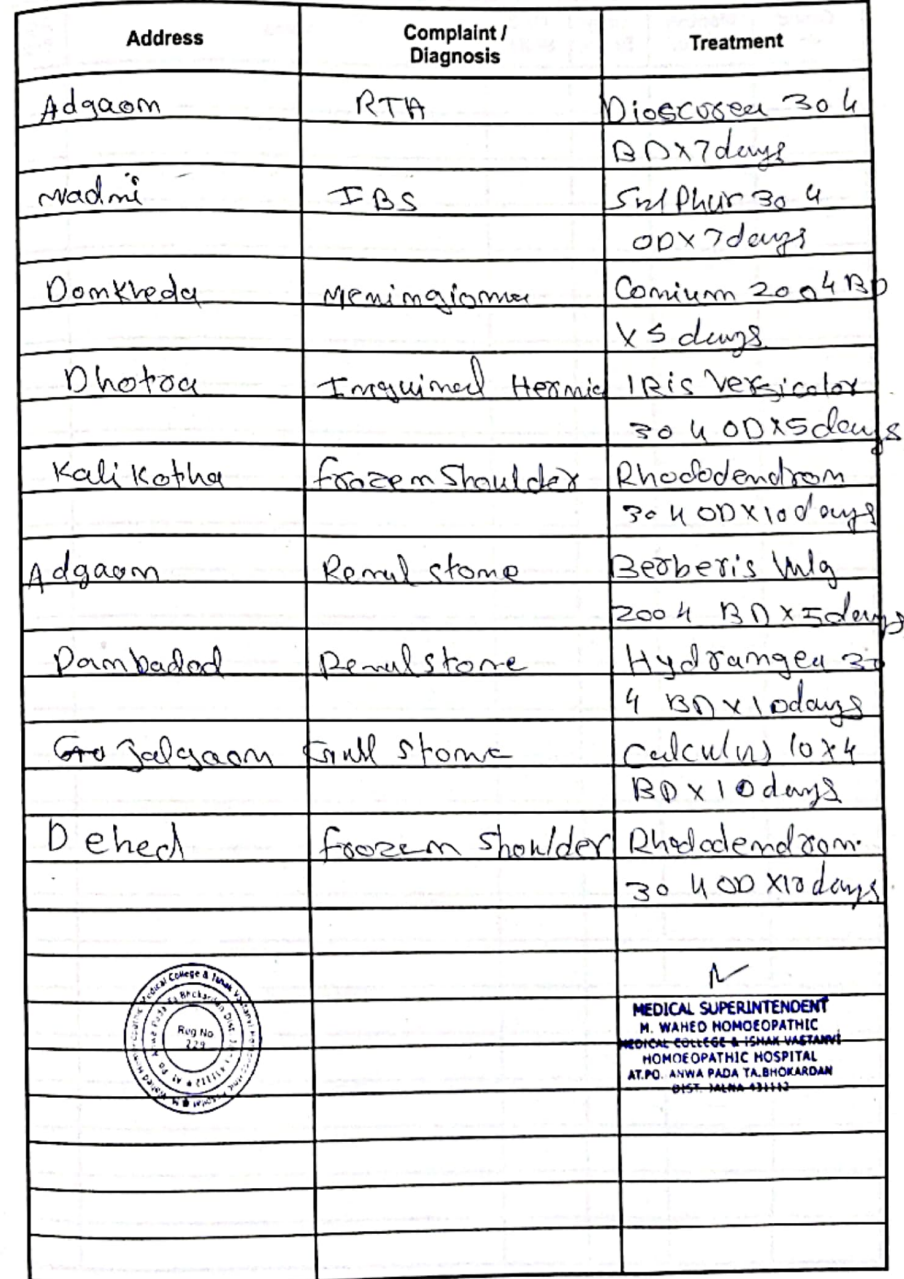 Address Complaint / Diagnosis Treatment
Adgaon RTA Dioscorea 30 4
BD X 7 days
Wadni IBS Sulphur 30 4
OD X 7 days
Domkheda Meningioma Conium 200 4 BD
X 5 days
Dhotra Inguinal Hernia IRis Versicolor
30 4 OD X 5 days
Kali Kotha Frozen Shoulder Rhododendron
30 4 OD X 10 days
Adgaon Renal stone Berberis Vulg
200 4 BD X 5 days
Dambadod Renal stone Hydrangea 30
4 BD X 10 days
Jalgaon Gall stone Calculus 10 X 4
BD X 10 days
Dehed Frozen Shoulder Rhododendron
30 4 OD X 10 days
Reg No
229
MEDICAL SUPERINTENDENT
M. WAHED HOMOEOPATHIC
MEDICAL COLLEGE & ISHAK VASTANVI
HOMOEOPATHIC HOSPITAL
AT.PO. ANWA PADA TA.BHOKARDAN
DIST. JALNA 431112